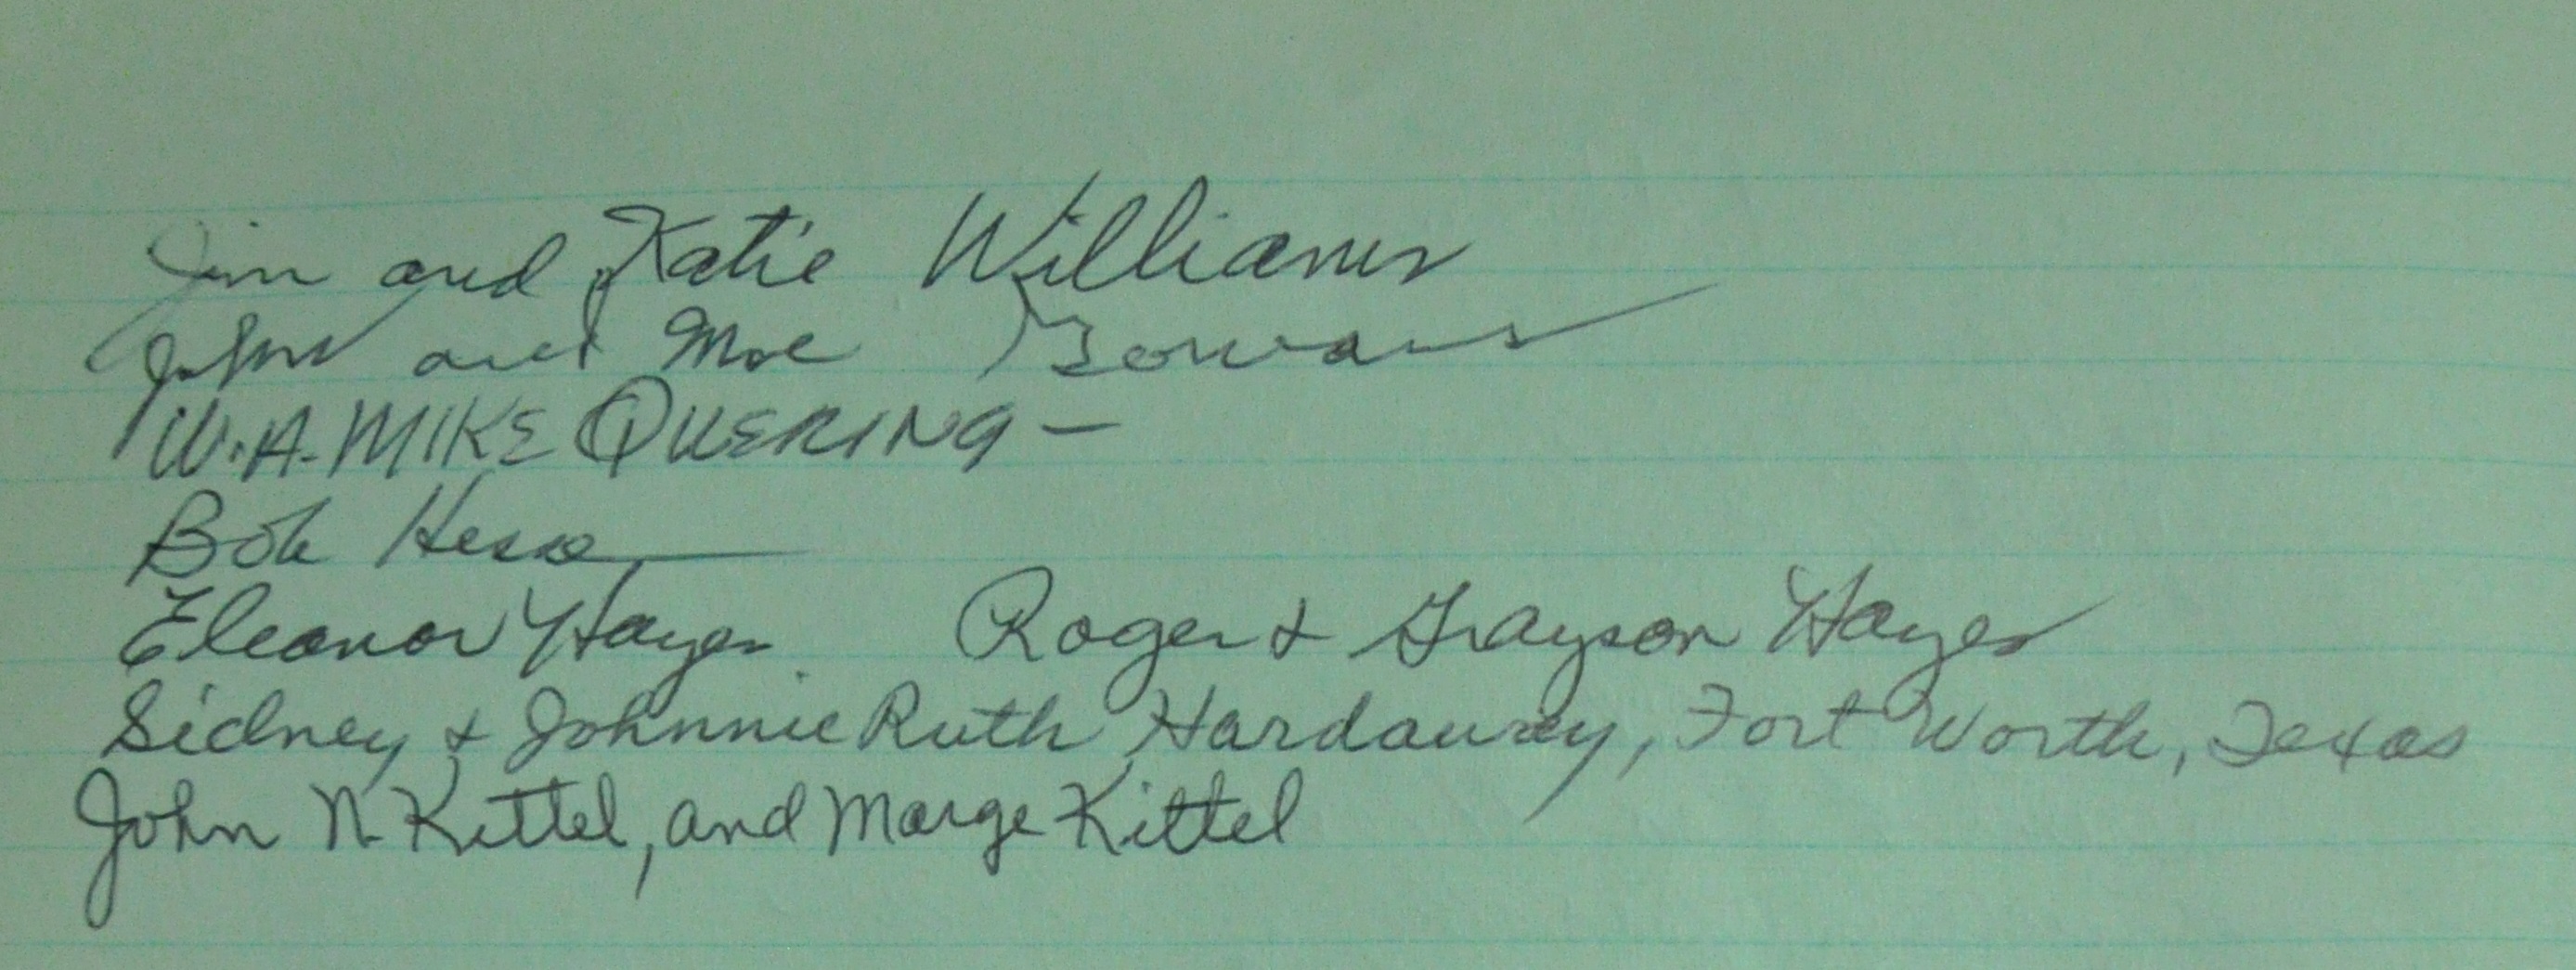 Jim and Katie Williams
John and Moe Gowans
W.A. MIKE QUERING —
Bob Hesse
Eleanor Hayes Roger & Grayson Hayes
Sidney & Johnnie Ruth Hardaway, Fort Worth, Texas
John N. Kittel, and Marge Kittel